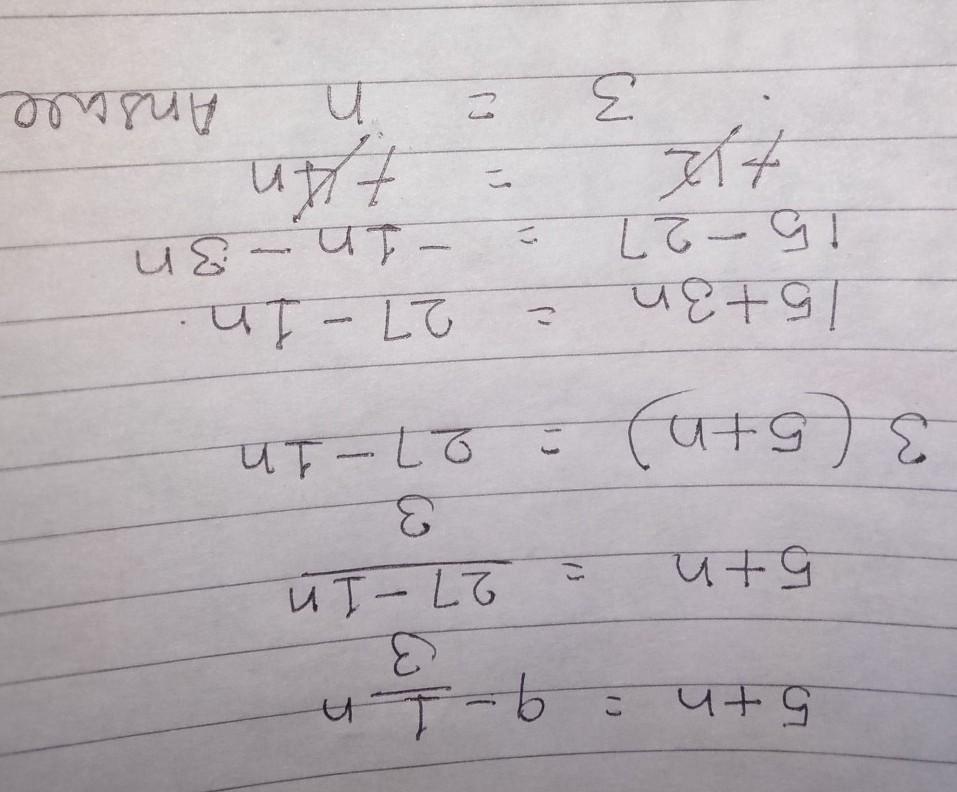 5+n = 9 - 1/3 n
5+n = 27-1n/3
3 (5+n) = 27-1n
15+3n = 27-1n.
15-27 = -1n-3n
+12 = +4n
3 = n Answer